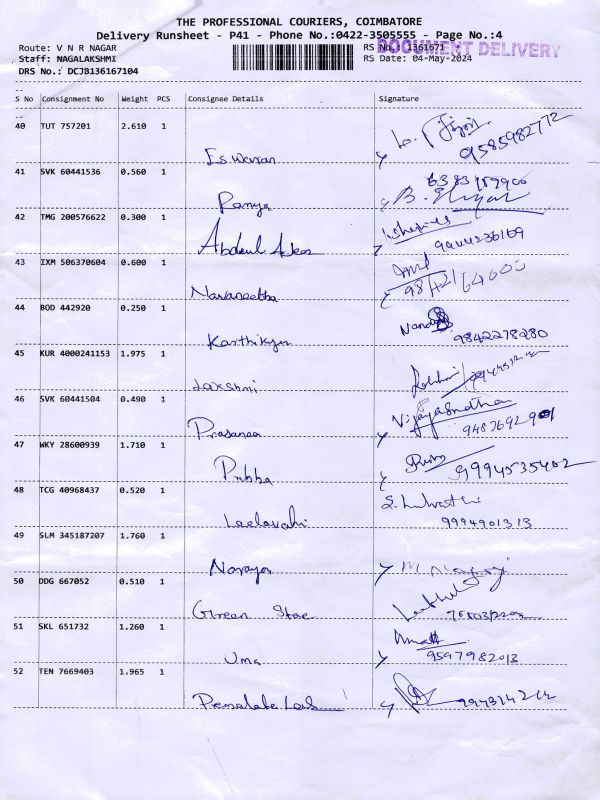 THE PROFESSIONAL COURIERS, COIMBATORE
Delivery Runsheet - P41 - Phone No.:0422-3505555 - Page No.:4
Route: V N R NAGAR
RS No.: 1361671
DOCUMENT DELIVERY
Staff: NAGALAKSHMI
RS Date: 04-May-2024
DRS No.: DCJB136167104
S No Consignment No Weight PCS Consignee Details Signature
40 TUT 757201 2.610 1
Eswaran
9585982772
41 SVK 60441536 0.560 1
Ramya
42 TMG 200576622 0.300 1
Abdul
9944236169
43 IXM 506370604 0.600 1
44 BOD 442920 0.250 1
Karthikyn
9842278280
45 KUR 4000241153 1.975 1
Laxshmi
46 SVK 60441504 0.490 1
Prasanna
47 WKY 28600939 1.710 1
Pribba
9994535402
48 TCG 40968437 0.520 1
Leelavahi
9994901313
49 SLM 345187207 1.760 1
Narayan
50 DDG 667052 0.510 1
Green Star
51 SKL 651732 1.260 1
Uma
9597982013
52 TEN 7669403 1.965 1